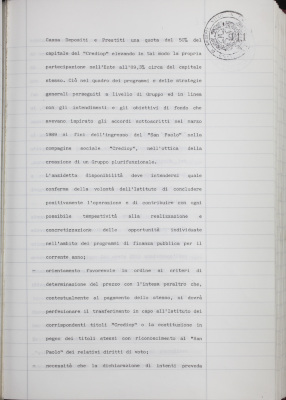 Cassa Depositi e Prestiti una quota del 50% del
capitale del "Crediop" elevando in tal modo la propria
partecipazione nell'Ente all'84,3% circa del capitale
stesso. Ciò nel quadro dei programmi e delle strategie
generali perseguiti a livello di Gruppo ed in linea
con gli intendimenti e gli obiettivi di fondo che
avevano ispirato gli accordi sottoscritti nel marzo
ai fini dell'ingresso del "San Paolo" nella
compagine sociale "Crediop", nell'ottica della
creazione di un Gruppo plurifunzionale.
L'anzidetta disponibilità deve intendersi quale
conferma della volontà dell'Istituto di concludere
positivamente l'operazione e di contribuire con ogni
possibile tempestività alla realizzazione e
concretizzazione delle opportunità individuate
nell'ambito dei programmi di finanza pubblica per il
corrente anno;
- orientamento favorevole in ordine ai criteri di
determinazione del prezzo con l'intesa peraltro che,
contestualmente al pagamento dello stesso, si dovrà
perfezionare il trasferimento in capo all'Istituto dei
corrispondenti titoli "Crediop" e la costituzione in
pegno dei titoli stessi con riconoscimento al "San
Paolo" dei relativi diritti di voto;
- necessità che la dichiarazione di intenti preveda